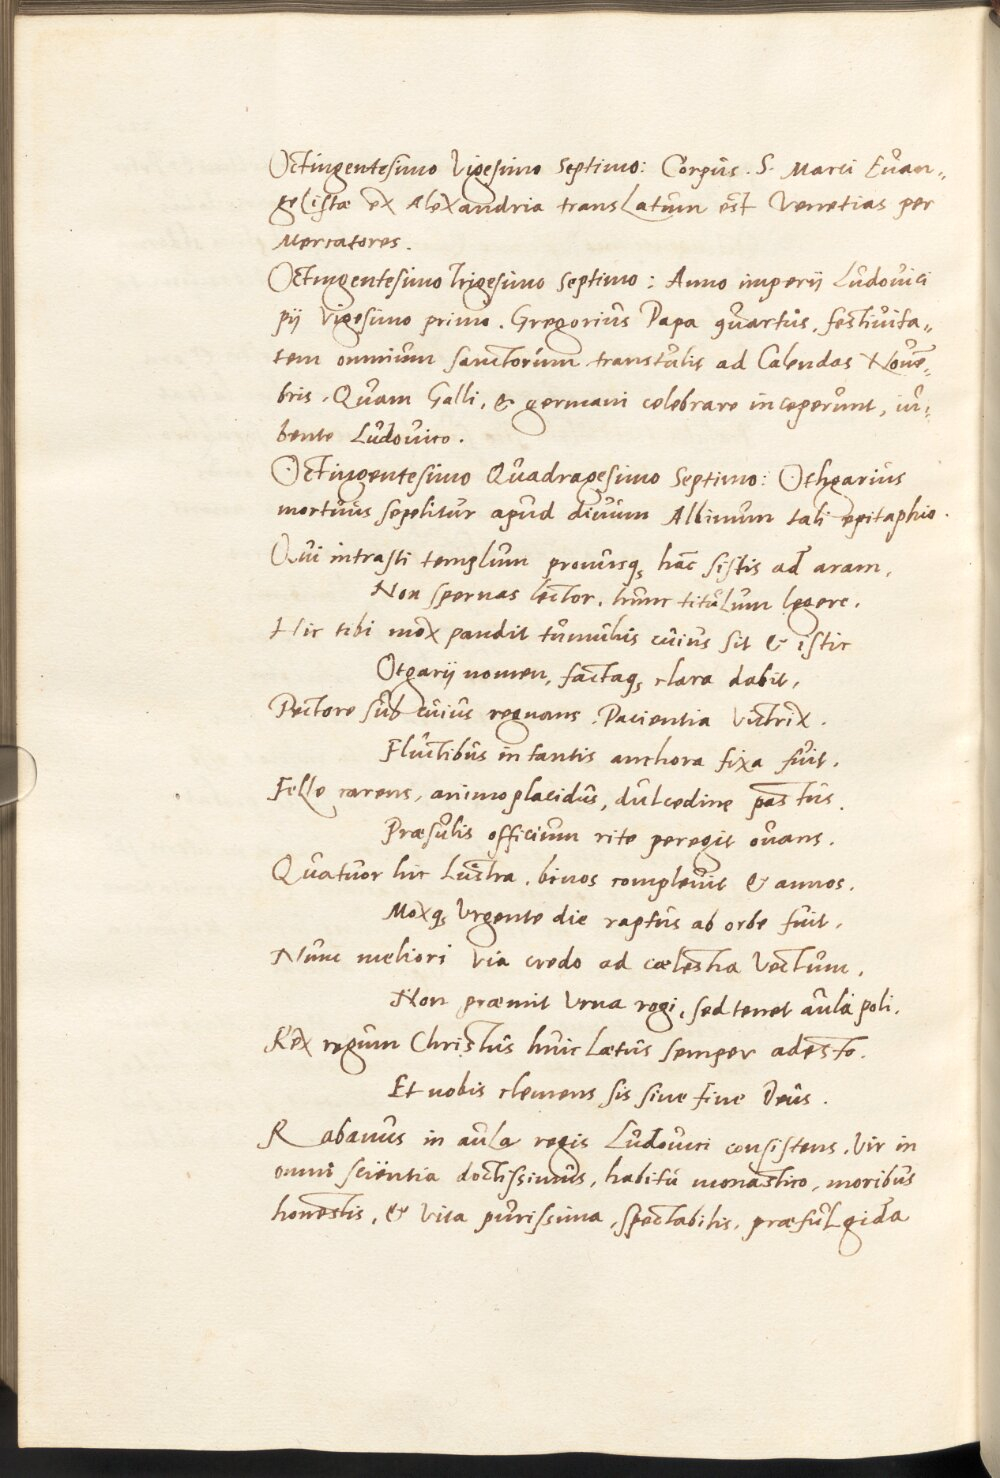 Octingentesimo Vigesimo Septimo: Corpus. S. Marci Euan„
gelistæ ex Alexandria translatum est Venetias per
Mercatores.
Octingentesimo Trigesimo Septimo: Anno imperij Ludouici
pij Vigesimo primo. Gregorius Papa quartus, festiuita„
tem omnium sanctorum transtulit ad Calendas Noue̅„
bris. Quam Galli, & germani celebrare inceperunt, iu„
bente Ludouico.
Octingentesimo Quadragesimo Septimo: Othgarius
mortuus sepelitur apud diuum Albinum tali epitaphio.
Qui intrasti templum pronusq, ha̅c sistis ad aram,
Non spernas lector, hunc titulum legere.
Hic tibi mox pandit tumulus cuius sit & istic
Otgarij nomen, factaq, clara dabit,
Pectore sub cuius regnans. Pacientia Victrix.
Fluctibus in tantis anchora fixa fuit.
Felle carens, animo placidus, dulcedine pastus.
Præsulis officium rite peregit ouans.
Quatuor hic Lustra, binos compleuit & annos.
Moxq, Vrgente die raptus ab orbe fuit.
Nunc meliori Via credo ad cælestia Vectum,
Non præmit Vrna rogi, sed tenet aula poli.
Rex regum Christus huic Lætus semper adesto.
Et nobis clemens sis sine fine Deus.
Rabanus in aula regis Ludouici consistens, Vir in
omni scientia doctissimus, habitu monastico, moribus
honestis, & Vita purissima, spectabilis, præfulgida